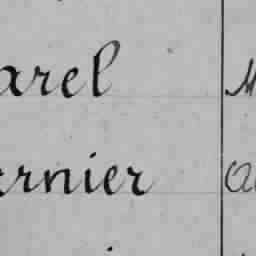 arel M
rnier